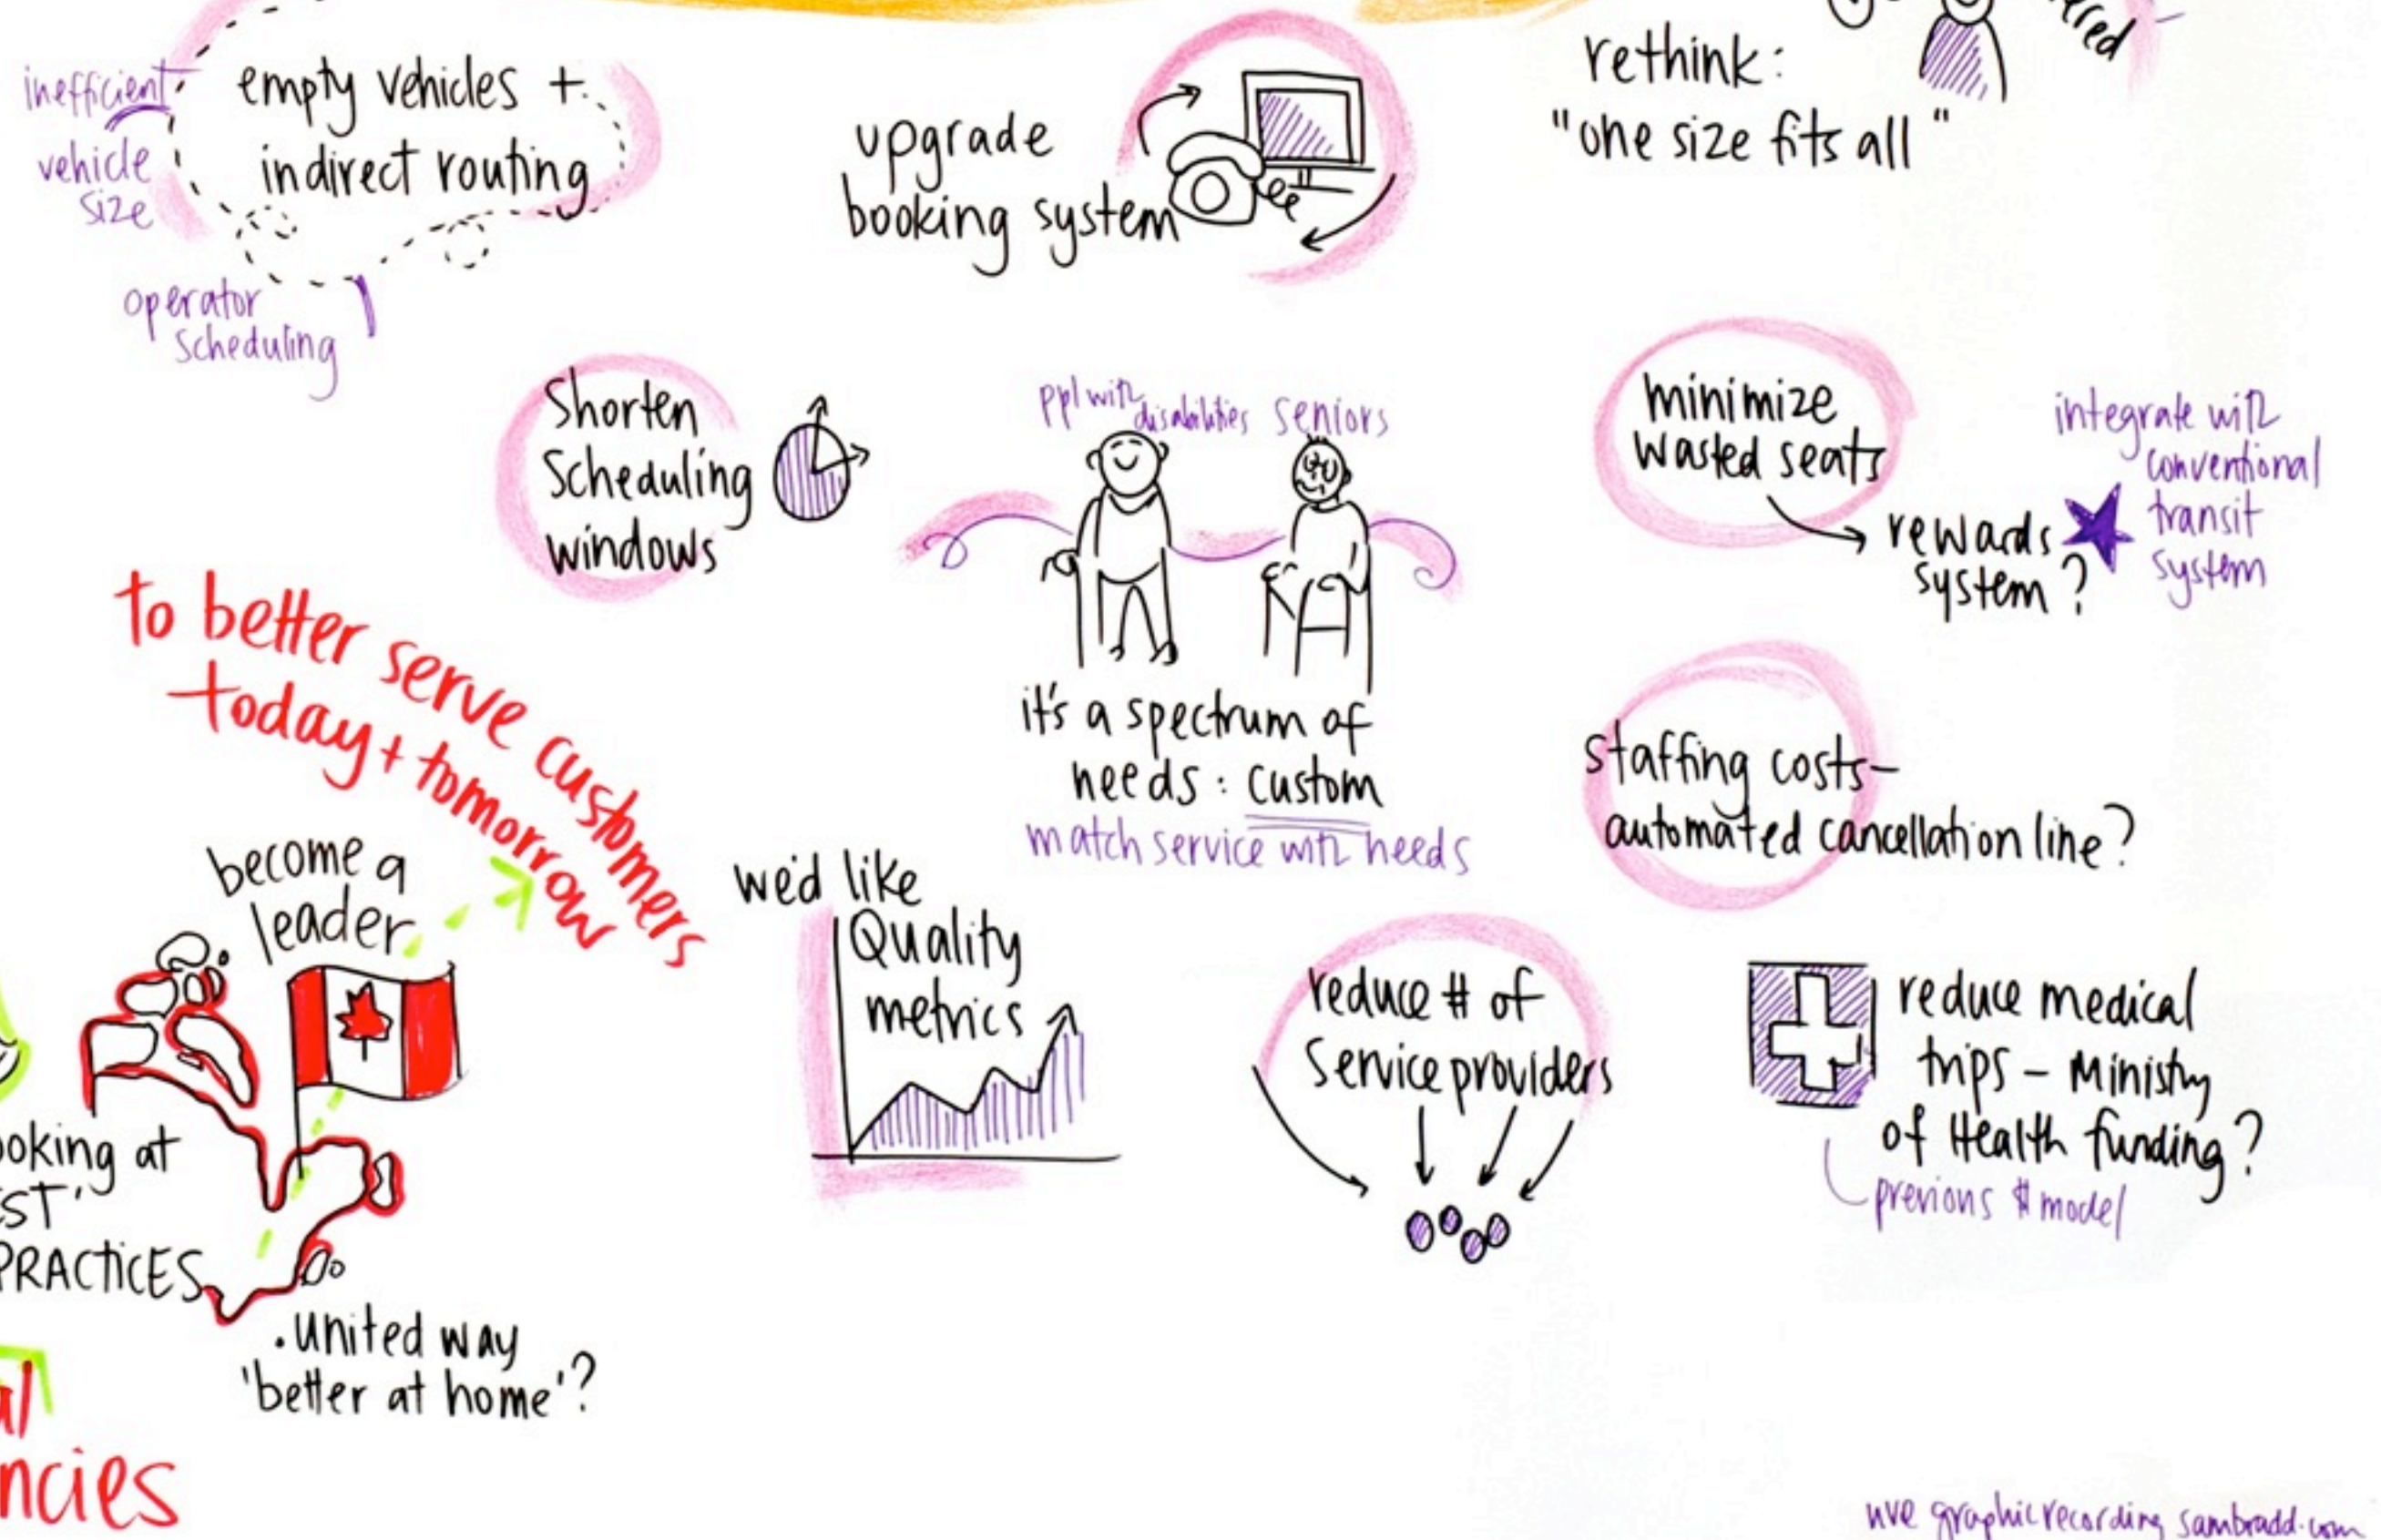 inefficient
vehicle
size
empty vehicles +
indirect routing
operator
scheduling
upgrade
booking system
rethink:
"one size fits all"
Shorten
Scheduling
windows
ppl with
disabilities
seniors
it's a spectrum of
needs: custom
match service with needs
minimize
wasted seats
rewards
system?
integrate with
conventional
transit
system
staffing costs-
automated cancellation line?
to better serve customers
today + tomorrow
become a
leader
we'd like
Quality
metrics
reduce # of
Service providers
reduce medical
trips - Ministry
of Health funding?
previous $ model
at
PRACTICES
.united way
'better at home'?
graphic recording sambradd.com